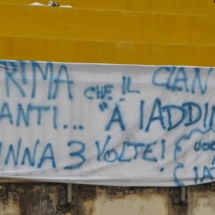 PRIMA CHE IL CIAN
ANTI... "A IADDI
INNA 3 VOLTE!